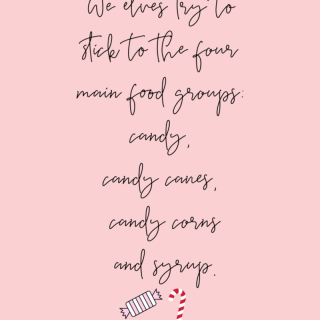 We elves try to
stick to the four
main food groups:
candy,
candy canes,
candy corns
and syrup.